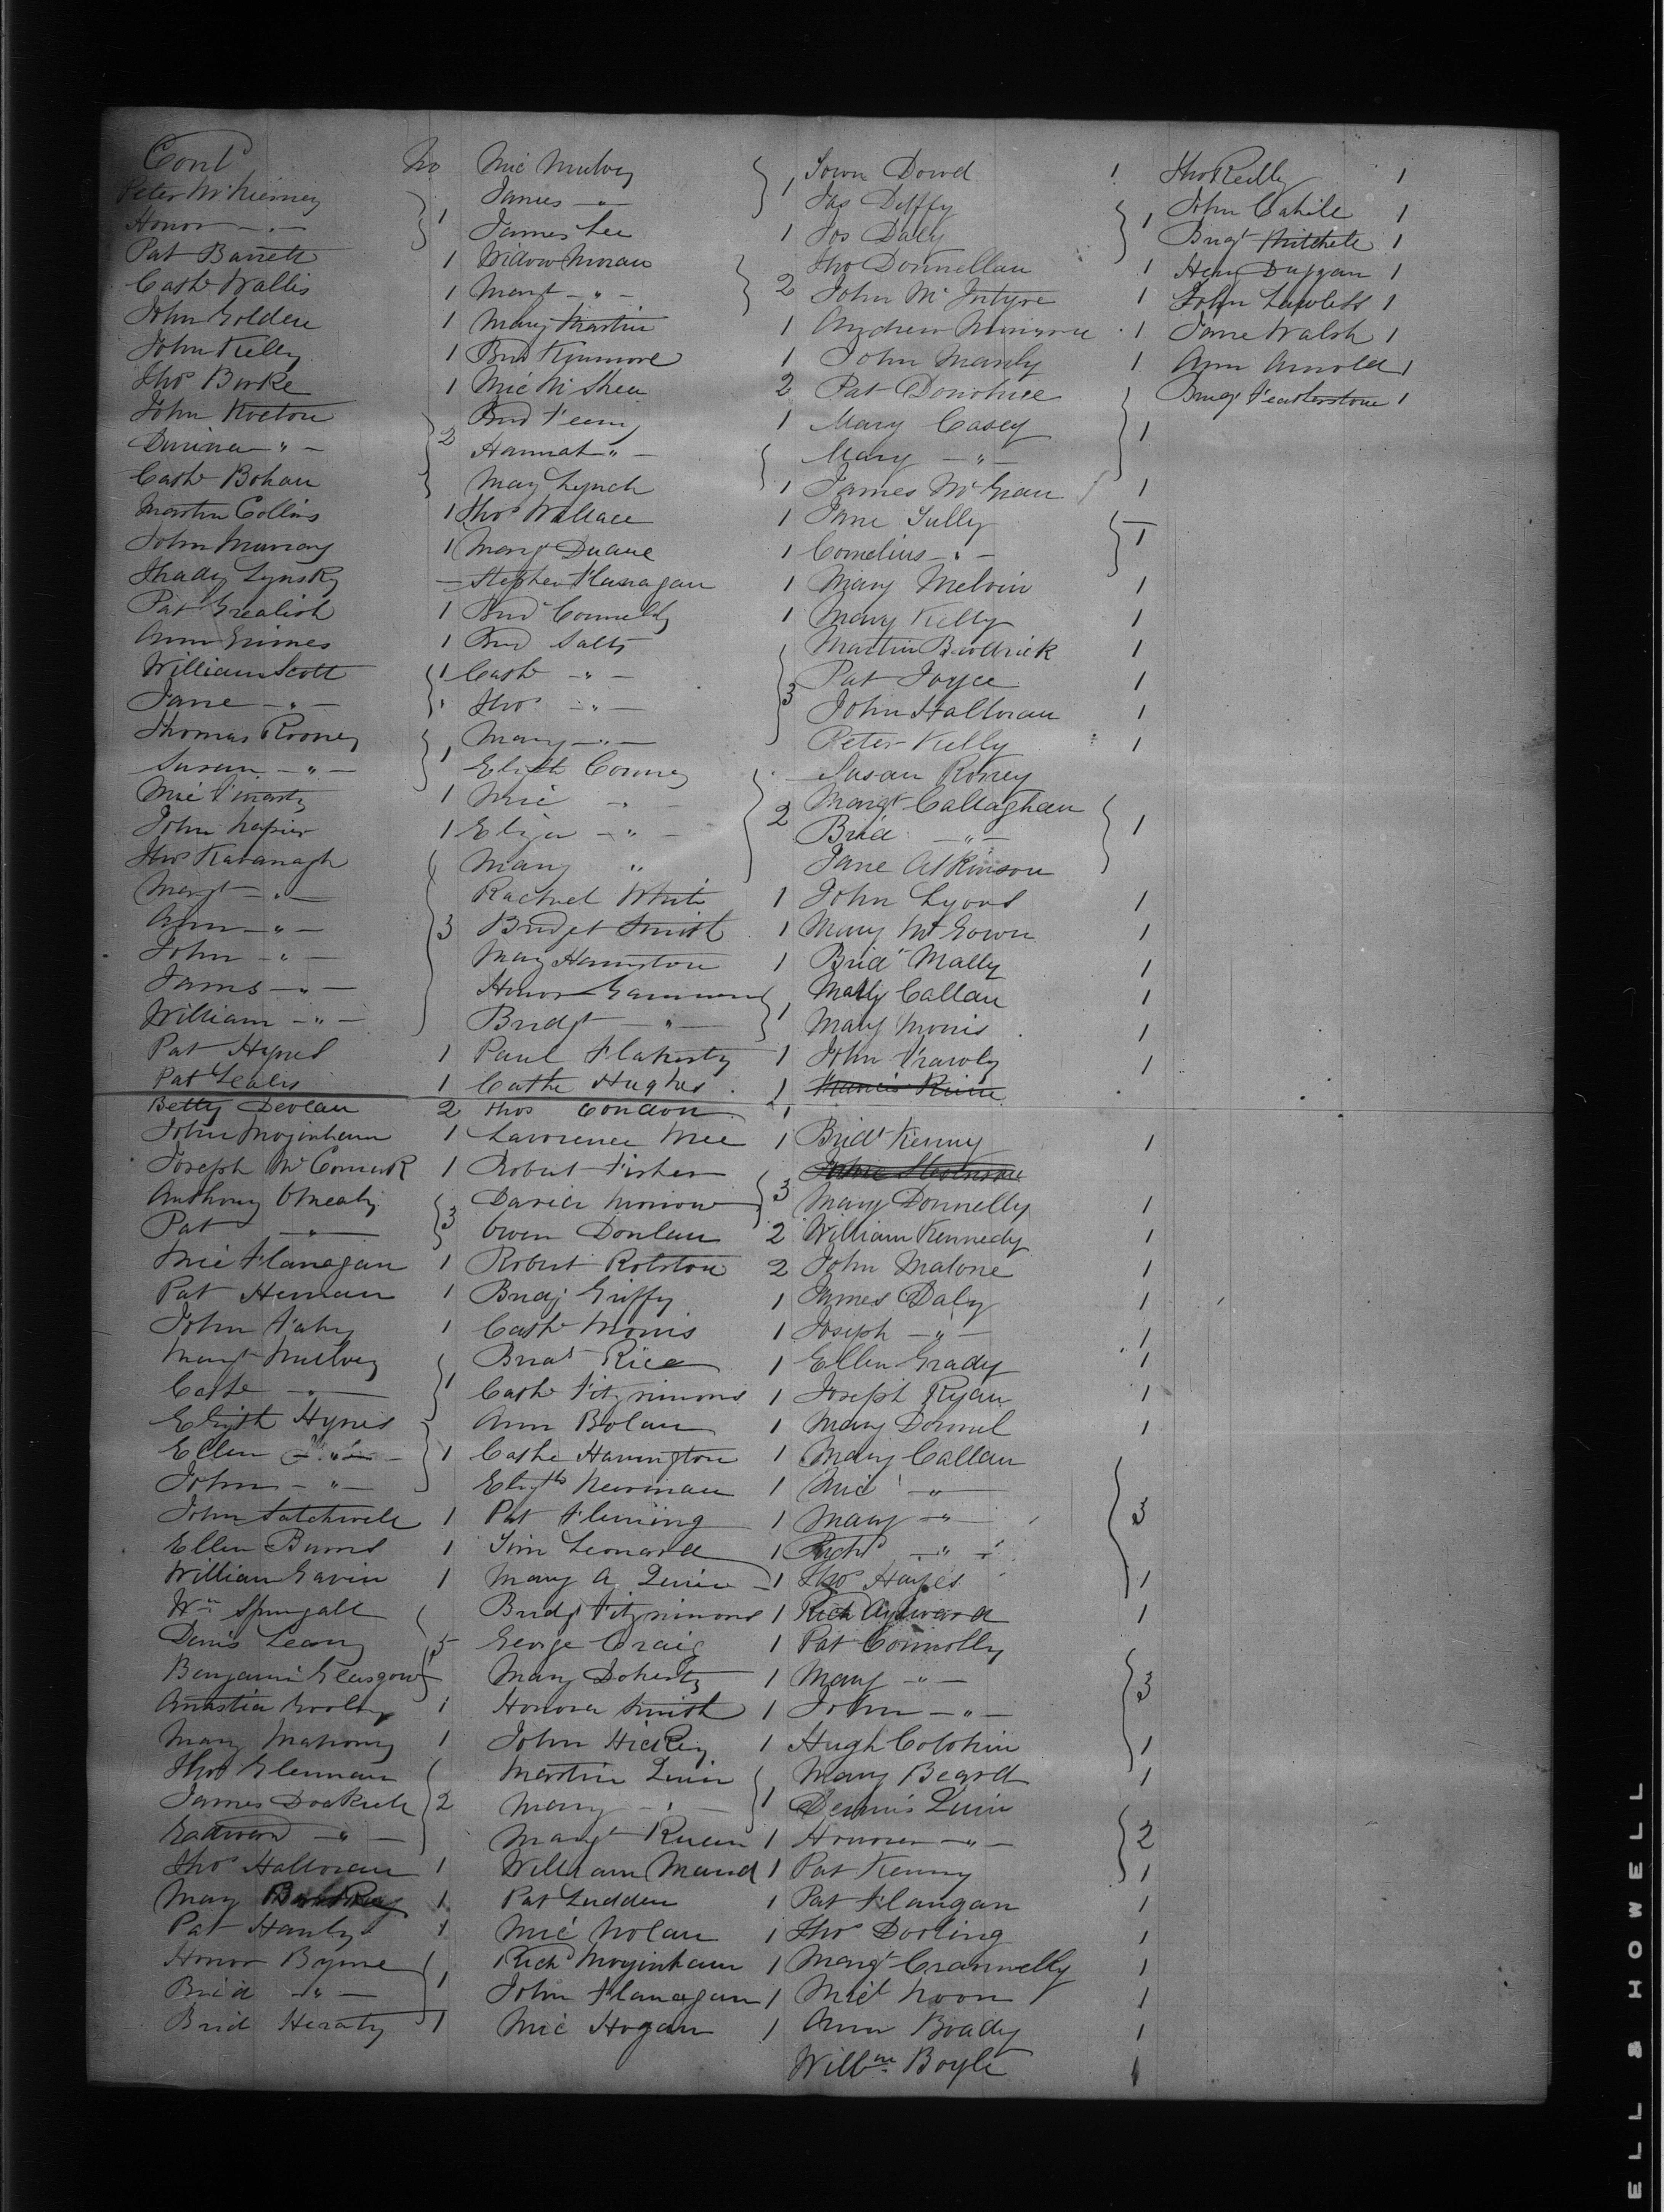 Cont No
Peter McKierney
Honor - " - 1
Pat Barrett 1
Cathe Wallis 1
John Golden 1
John Kelly 1
Thos Burke 1
John
- " - 2
Cathe Bohan
Martin Collins 1
John Murray 1
Thady Lynsky -
Pat Grealish 1
Ann Grimes 1
William Scott 1
Jane - " -
Thomas Rooney
Susan - " - 1
Mic 1
John Napier 1
Thos Kavanagh
Margt - " -
Ann - " - 3
John - " -
James - " -
William - " -
Pat Hynes 1
Pat 1
Betty Devlan 2
John Moginham 1
Joseph McCormick 1
Anthony
Pat - " - 3
Mic Flanagan 1
Pat Heman 1
John Fahy 1
Margt Mulvey
Cathe - " - 1
Elizth Hynes
Ellen - " - 1
John - " -
John Satchwell 1
Ellen Burns 1
William Gavin 1
Wm Springall
Denis Leary 5
Benjamin Glasgow
Anastia 1
Mary Mahony 1
Thos Glennan
James 2
Edward - " -
Thos Halloran 1
Mary 1
Pat Hanly 1
Honor Byrne
Brid - " - 1
Brid Heraty 1
Mic Mulvey
James - " - 1
James Lee 1
Widow Moran
Margt - " - 2
Mary Martin 1
Brid Kinmore 1
Mic McShea 2
Brid Feeny 1
Hannah - " -
Mary Lynch 1
Thos Wallace 1
Margt Duane 1
Stephen Flanagan 1
Brid Connelly 1
Brid Salts
Cathe - " -
Thos - " - 3
Mary - " -
Elizth Conney
Mic - " -
Eliza - " - 2
Mary "
Rachael White 1
Bridget Smith 1
Mary Hamptone 1
Honor
Bridgt - " - 1
Paul Flaherty 1
Cathe Hughes 1
Thos Condon 1
Lawrence Mee 1
Robert Fisher
David Morrow 3
Owen Donlan 2
Robert Rolston 2
Bridg Griffy 1
Cathe Morris 1
Bridt Rice 1
Cathe Fitzsimons 1
Ann Bolan 1
Cathe Harrington 1
Elizth Newman 1
Pat Fleming 1
Tim Leonard 1
Mary A Quin 1
Bridg Fitzsimons 1
George Craig 1
Mary Doherty 1
Honora Smith 1
John Hickey 1
Martin Quin
Mary - " - 1
Margt 1
William Maud 1
Pat Ludden 1
Mic Nolan 1
Richd Moginham 1
John Flanagan 1
Mic Hogan 1
Dowd 1
Jas Duffy
Jos Daly 1
Thos Donnellan 1
John McIntyre 1
Andrew 1
John Manly 1
Pat Donohue
Mary Casey 1
Mary - " -
James McGrau 1
Jane Tully
Cornelius - " - 1
Mary Melvin 1
Mary Kelly 1
Martin Brodrick 1
Pat Joyce 1
John Halloran 1
Peter Kelly 1
Susan Roney
Margt Callaghan
Brid - " - 1
Jane Atkinson
John Lyons 1
Mary McGown 1
Brid Mally 1
Matty Callan 1
Mary Morris 1
John Frawly 1
Bridt Kenny 1
Mary Donnelly 1
William Kennedy 1
John Malone 1
James Daly 1
Joseph - " - 1
Ellen Grady 1
Joseph Ryan 1
Mary Dornel 1
Mary Callan
Mic - " -
Mary - " - 3
Richd - " -
Thos Hayes 1
Rich Aylward 1
Pat Connolly
Mary - " - 3
John - " -
Hugh Colohin 1
Mary Beard 1
Dennis Quin
Honora - " - 2
Pat Kenny 1
Pat Flangan 1
Thos Dorling 1
Margt Crannelly 1
Micl Noon 1
Ann Boady 1
Willm Boyle 1
Thos Reilly 1
John Cahile 1
Bridgt Mitchele 1
Henry Duggan 1
John Lawless 1
Jane Walsh 1
Ann Arnold 1
Bridg Featherstone 1
ELL & HOWELL